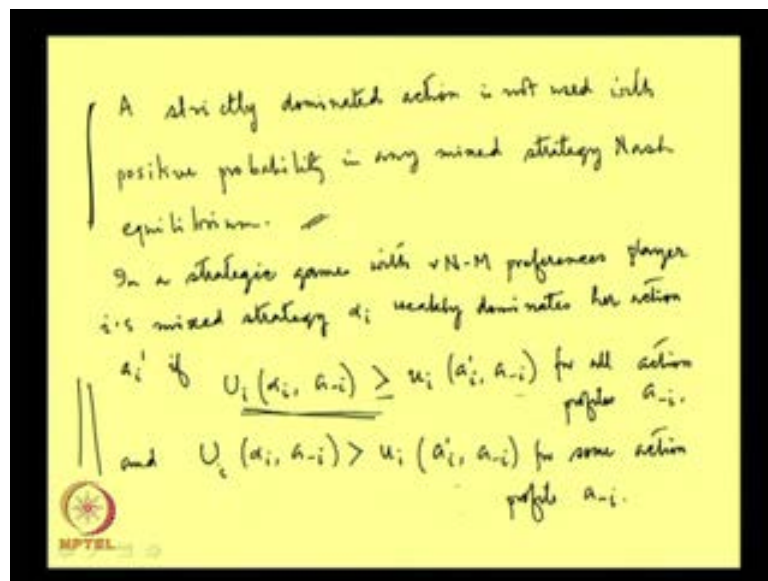 A strictly dominated action is not used with
positive probability in any mixed strategy Nash
equilibrium.
In a strategic game with vN-M preferences player
i's mixed strategy αi weakly dominates her action
ai' if Ui (αi, a-i) ≥ ui (ai', a-i) for all action
profiles a-i.
and Ui (αi, a-i) > ui (ai', a-i) for some action
profile a-i.
NPTEL